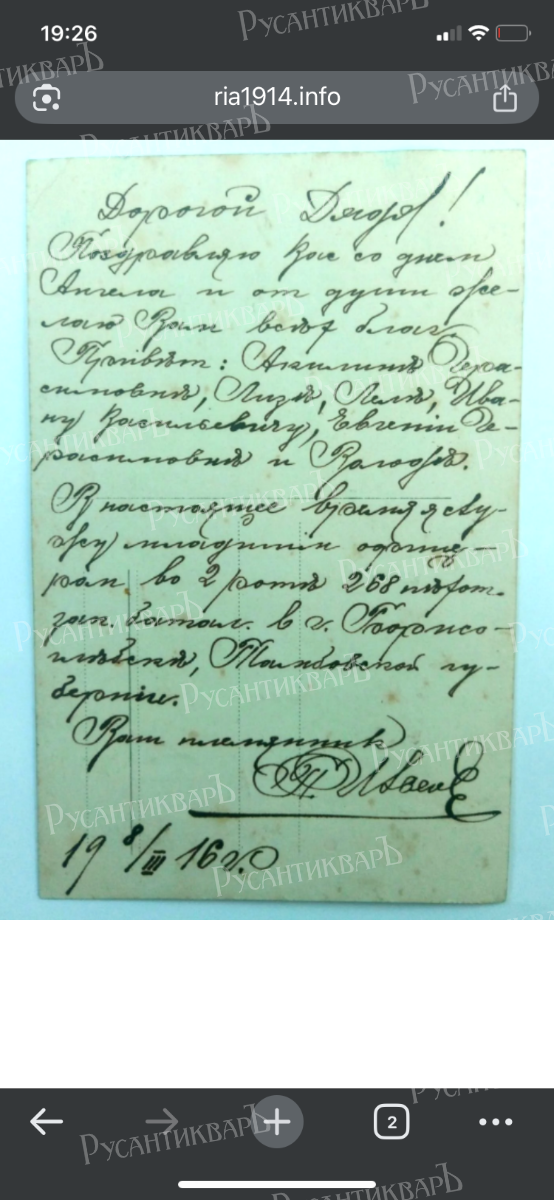 19:26
ria1914.info
Дорогой Дядя!
Поздравляю Вас со днем
Ангела и от души же-
лаю Вам всѣх благ.
Привѣт: Акилинѣ Гера-
симовнѣ, Лизѣ, Лелѣ, Ива-
ну Васильевичу, Евгеніи Ге-
расимовнѣ и Володѣ.
В настоящее время я слу-
жу младшим офице-
ром во 2 ротѣ 268 пѣхот.
зап. батал. в г. Борисо-
глѣбскѣ, Тамбовской гу-
берніи.
Ваш племянник
19 8/III 16 г.
2
РУСАНТИКВАРЪ